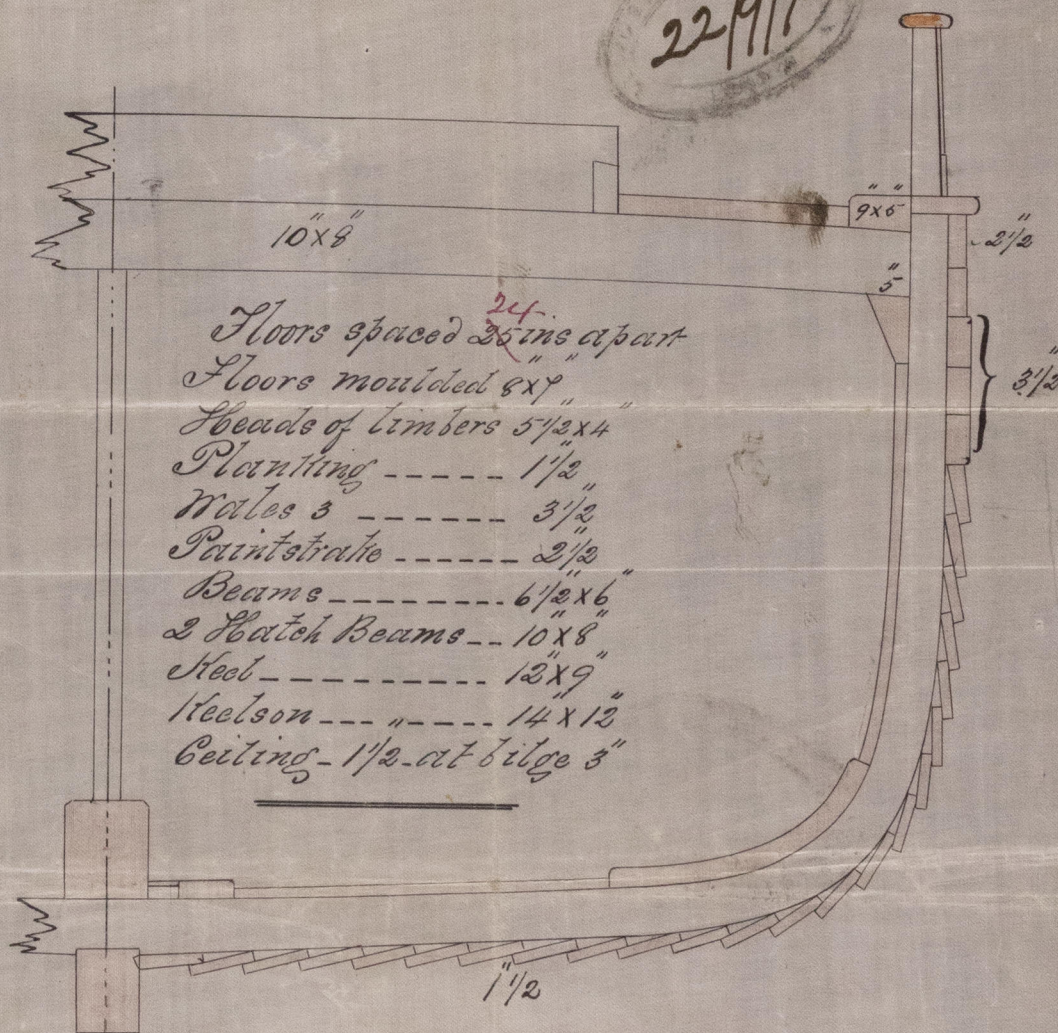 22/9/1
10"x8"
9"x5"
2"1/2
5"
3"1/2
24
Floors spaced 25 ins apart
Floors moulded 8"x9"
Heads of timbers 5 1/2"x4"
Planking ----- 1"1/2
Wales 3 ------- 3"1/2
Paintstrake ------ 2"1/2
Beams --------- 6 1/2"x6"
2 Hatch Beams -- 10"x8"
Keel ---------- 12"x9"
Keelson --- „ ---- 14"x12"
Ceiling - 1 1/2 - at bilge 3"
1"1/2